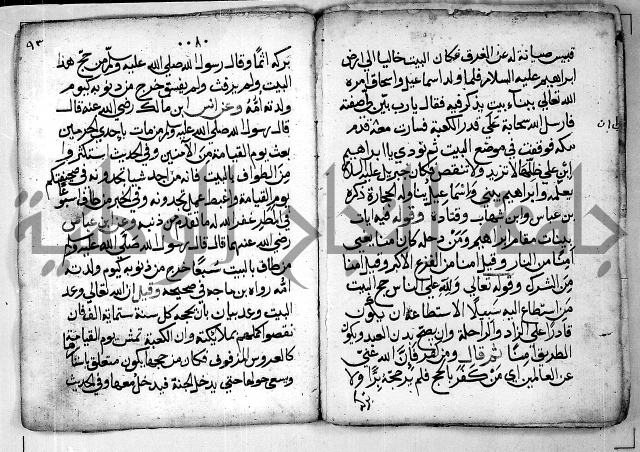 قبيس صيانة له عن الغرق فكان البيت خاليا الى زمن
ابراهيم عليه السلام فلما ولد اسماعيل واسحاق امره
الله تعالى ببناء بيت يذكر فيه فقال يارب بين لى صفته
فارسل الله سحابة على قدر الكعبة فسارت معه قدم
مكة فوقفت فى موضع البيت ثم نودى يا ابراهيم
ابن على ظلها لا تزيد ولا تنقص فكان جبريل عليه السلام
يعلمه وابراهيم يبنى واسماعيل يناوله الحجارة ذكره
بن عباس وابن شهاب وقتادة وقوله فيه ايات
بينات مقام ابراهيم ومن دخله كان امنا يعنى
امنا من النار وقيل امنا من الفزع الاكبر وقيل امنا
من الشرك وقوله تعالى ولله على الناس حج البيت
من استطاع اليه سبيلا الاستطاعة ان يكون
قادرا على الزاد والراحلة وان يصح بدن العبد ويكون
الطريق امنا ثم قال ومن كفر فان الله غنى
عن العالمين اى من كفر بالحج فلم ير حجه برا ولا
٠٠٨٠
٩٣
تركه اثما وقال رسول الله صلى الله عليه وسلم من حج هذا
البيت ولم يرفث ولم يفسق خرج من ذنوبه كيوم
ولدته امه وعن انس ابن مالك رضى الله عنه قال
قال رسول الله صلى الله عليه وسلم من مات باحدى الحرمين
بعث يوم القيامة من الامنين وفى الحديث استكثروا
من الطواف بالبيت فانه من احد شيا تجدونه فى صحيفتكم
يوم القيامة واغبط عمل تجدونه وفى الخبر من طاف سبوعا
فى المطر غفر الله له ما تقدم من ذنبه وعن ابن عباس
رضى الله عنهما قال قال رسول الله صلى الله عليه وسلم
من طاف بالبيت سبعا خرج من ذنوبه كيوم ولدته
امه رواه بن ماجه فى صحيحه وقيل ان الله تعالى وعد
البيت وعدا بان يحجه كل سنة ستمائة الف فان
نقصوا كملهم بملائكته وان الكعبة تحشر يوم القيامة
كالعروس المزفوفى فكل من حجها يكون متعلق باستارها
ويسعى حولها حتى يدخل الجنة فيدخل معها وفى الحديث